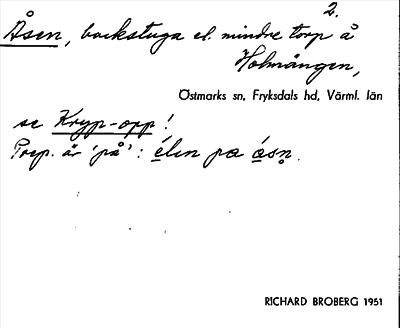 2.
Åsen, backstuga el. mindre torp å
Holmängen,
Östmarks sn, Fryksdals hd, Värml. län
se Kryp-opp!
Prep. är 'på': élin pa ásn.
RICHARD BROBERG 1951